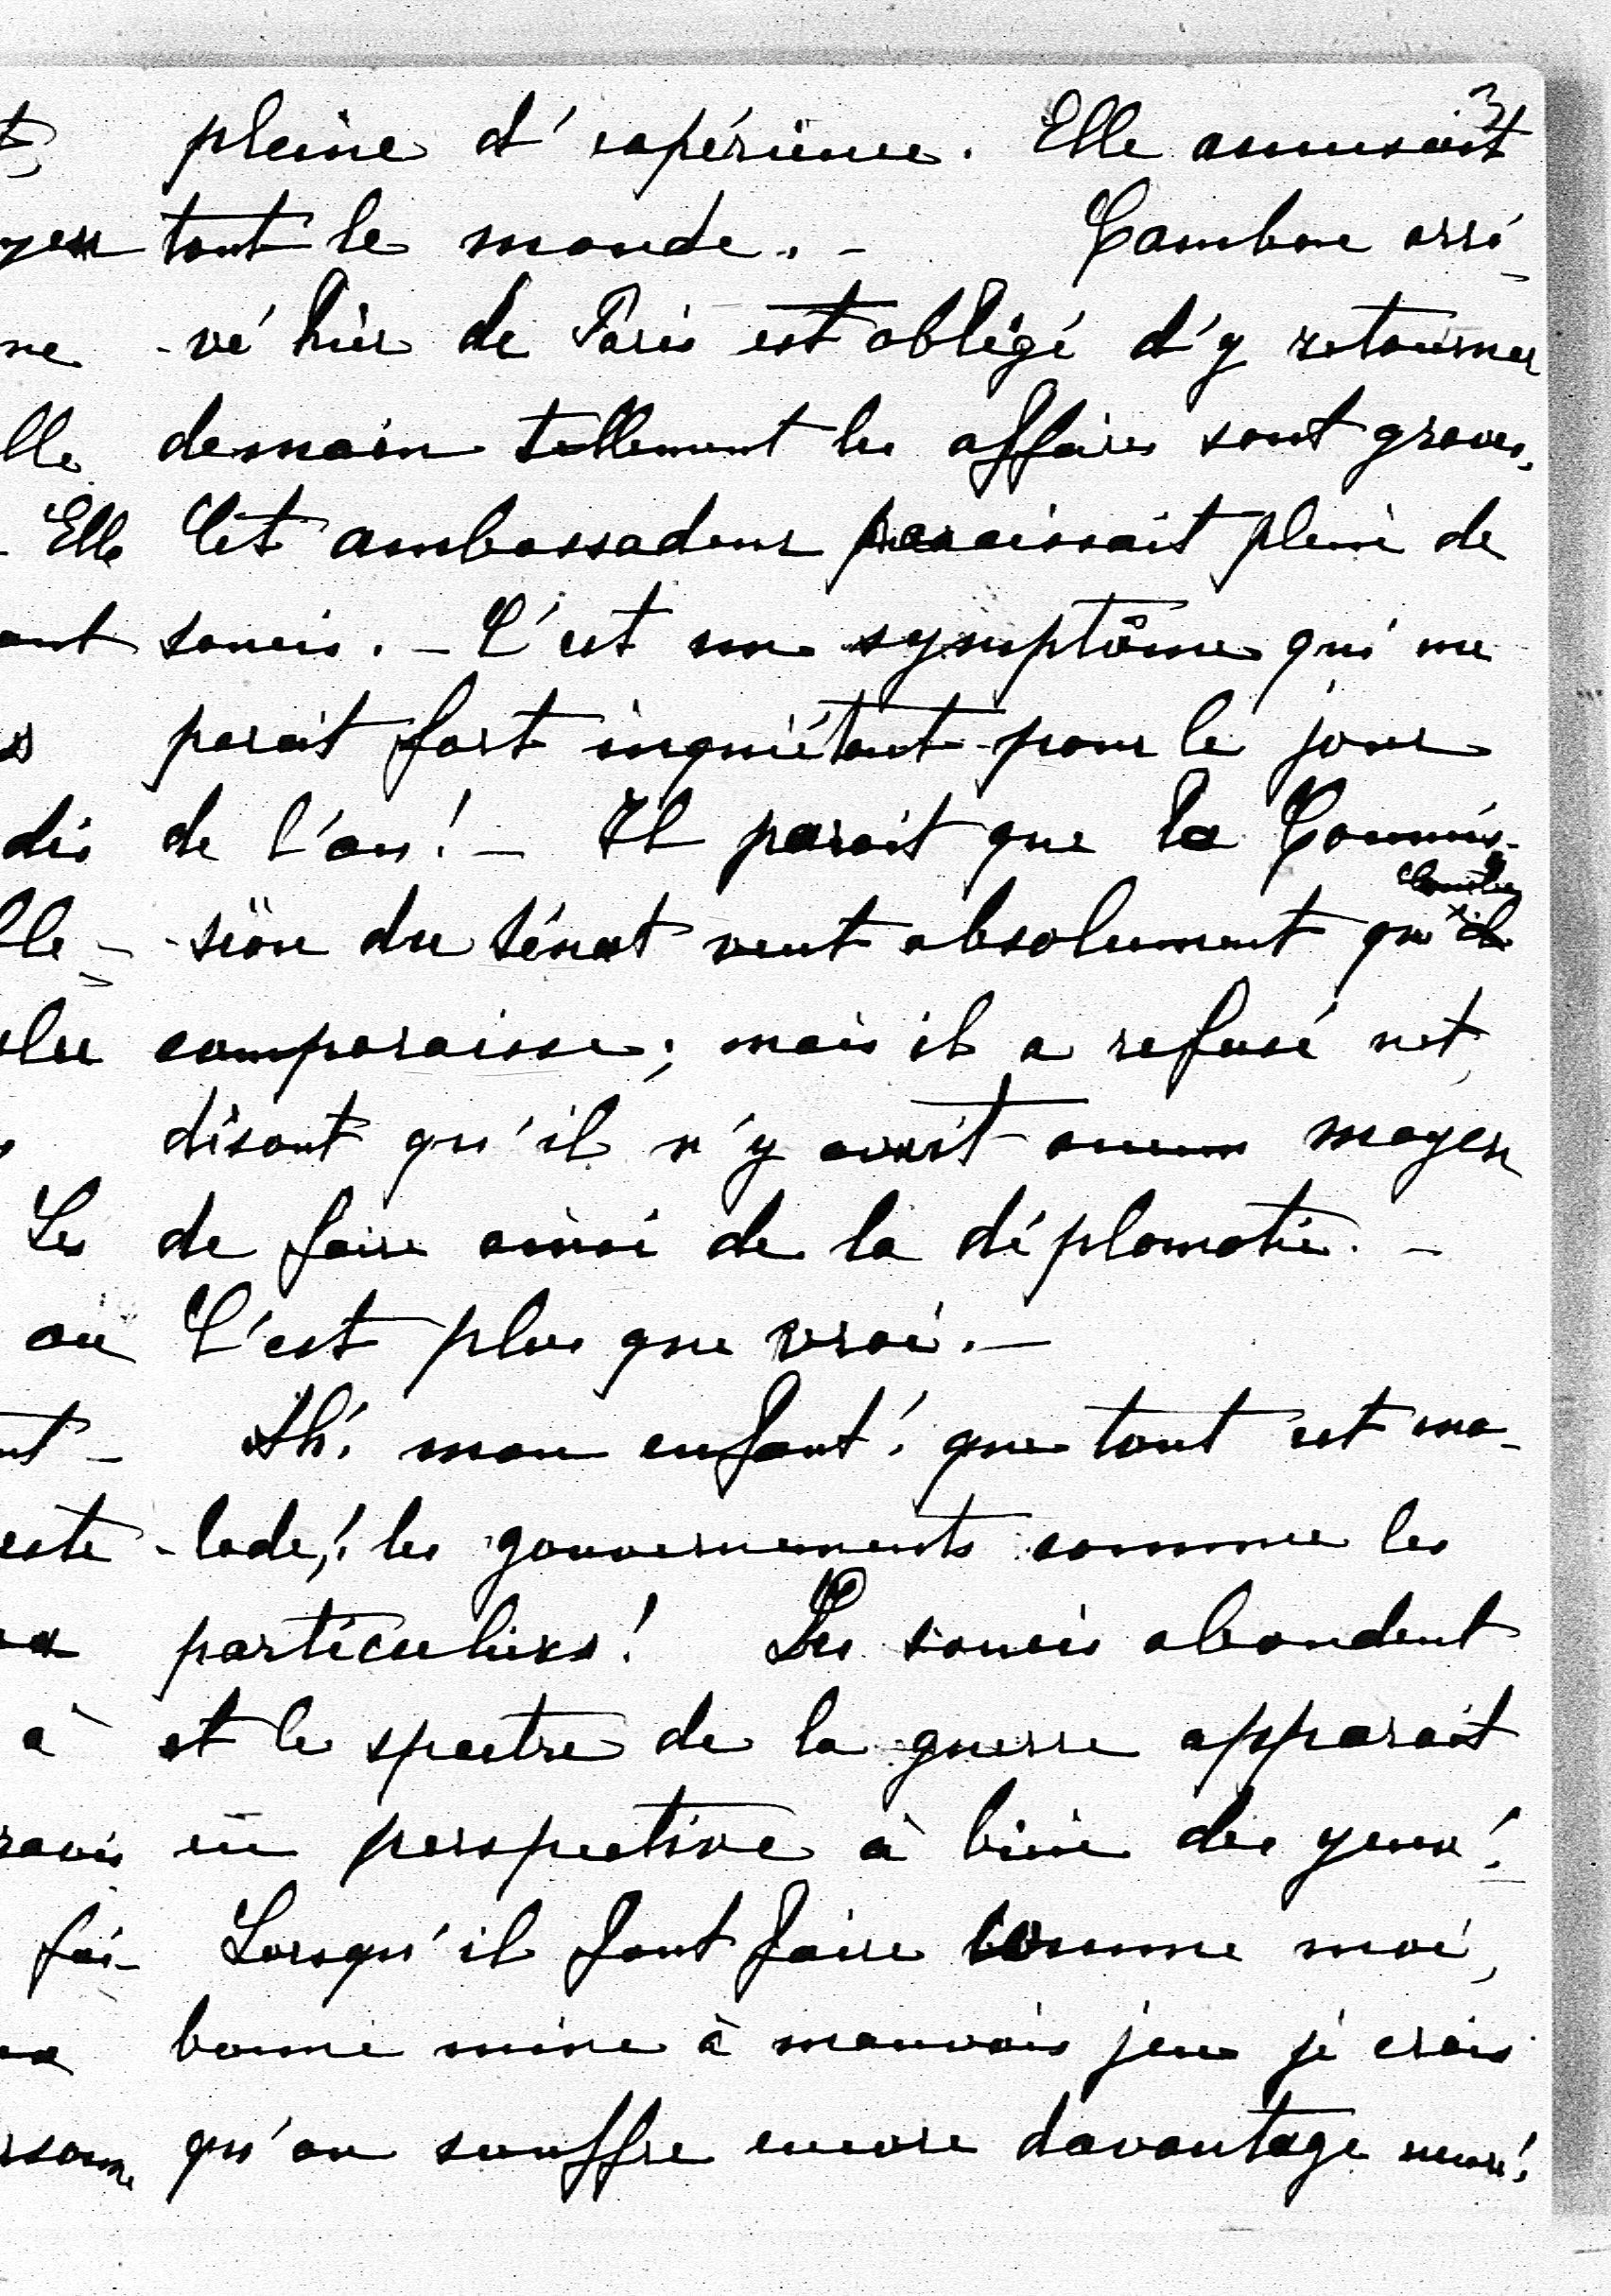 3
pleine d'expérience. Elle amusait
tout le monde. - Cambon arri-
-vé hier de Paris est obligé d'y retourner
demain tellement les affaires sont graves.
Cet ambassadeur paraissait plein de
soucis. - C'est un symptôme qui me
parait fort inquiétant pour le jour
de l'an! - Il parait que la Commis-
-sion du Sénat veut absolument qu'il
comparaisse; mais il a refusé net,
disant qu'il n'y avait aucun moyen
de faire ainsi de la diplomatie. -
C'est plus que vrai. -
Ah! mon enfant! que tout est ma-
-lade,! les gouvernements comme les
particuliers! Les soucis abondent
et le spectre de la guerre apparait
en perspective à bien des yeux!
Lorsqu'il faut faire comme moi,
bonne mine à mauvais jeu je crois
qu'on souffre encore davantage